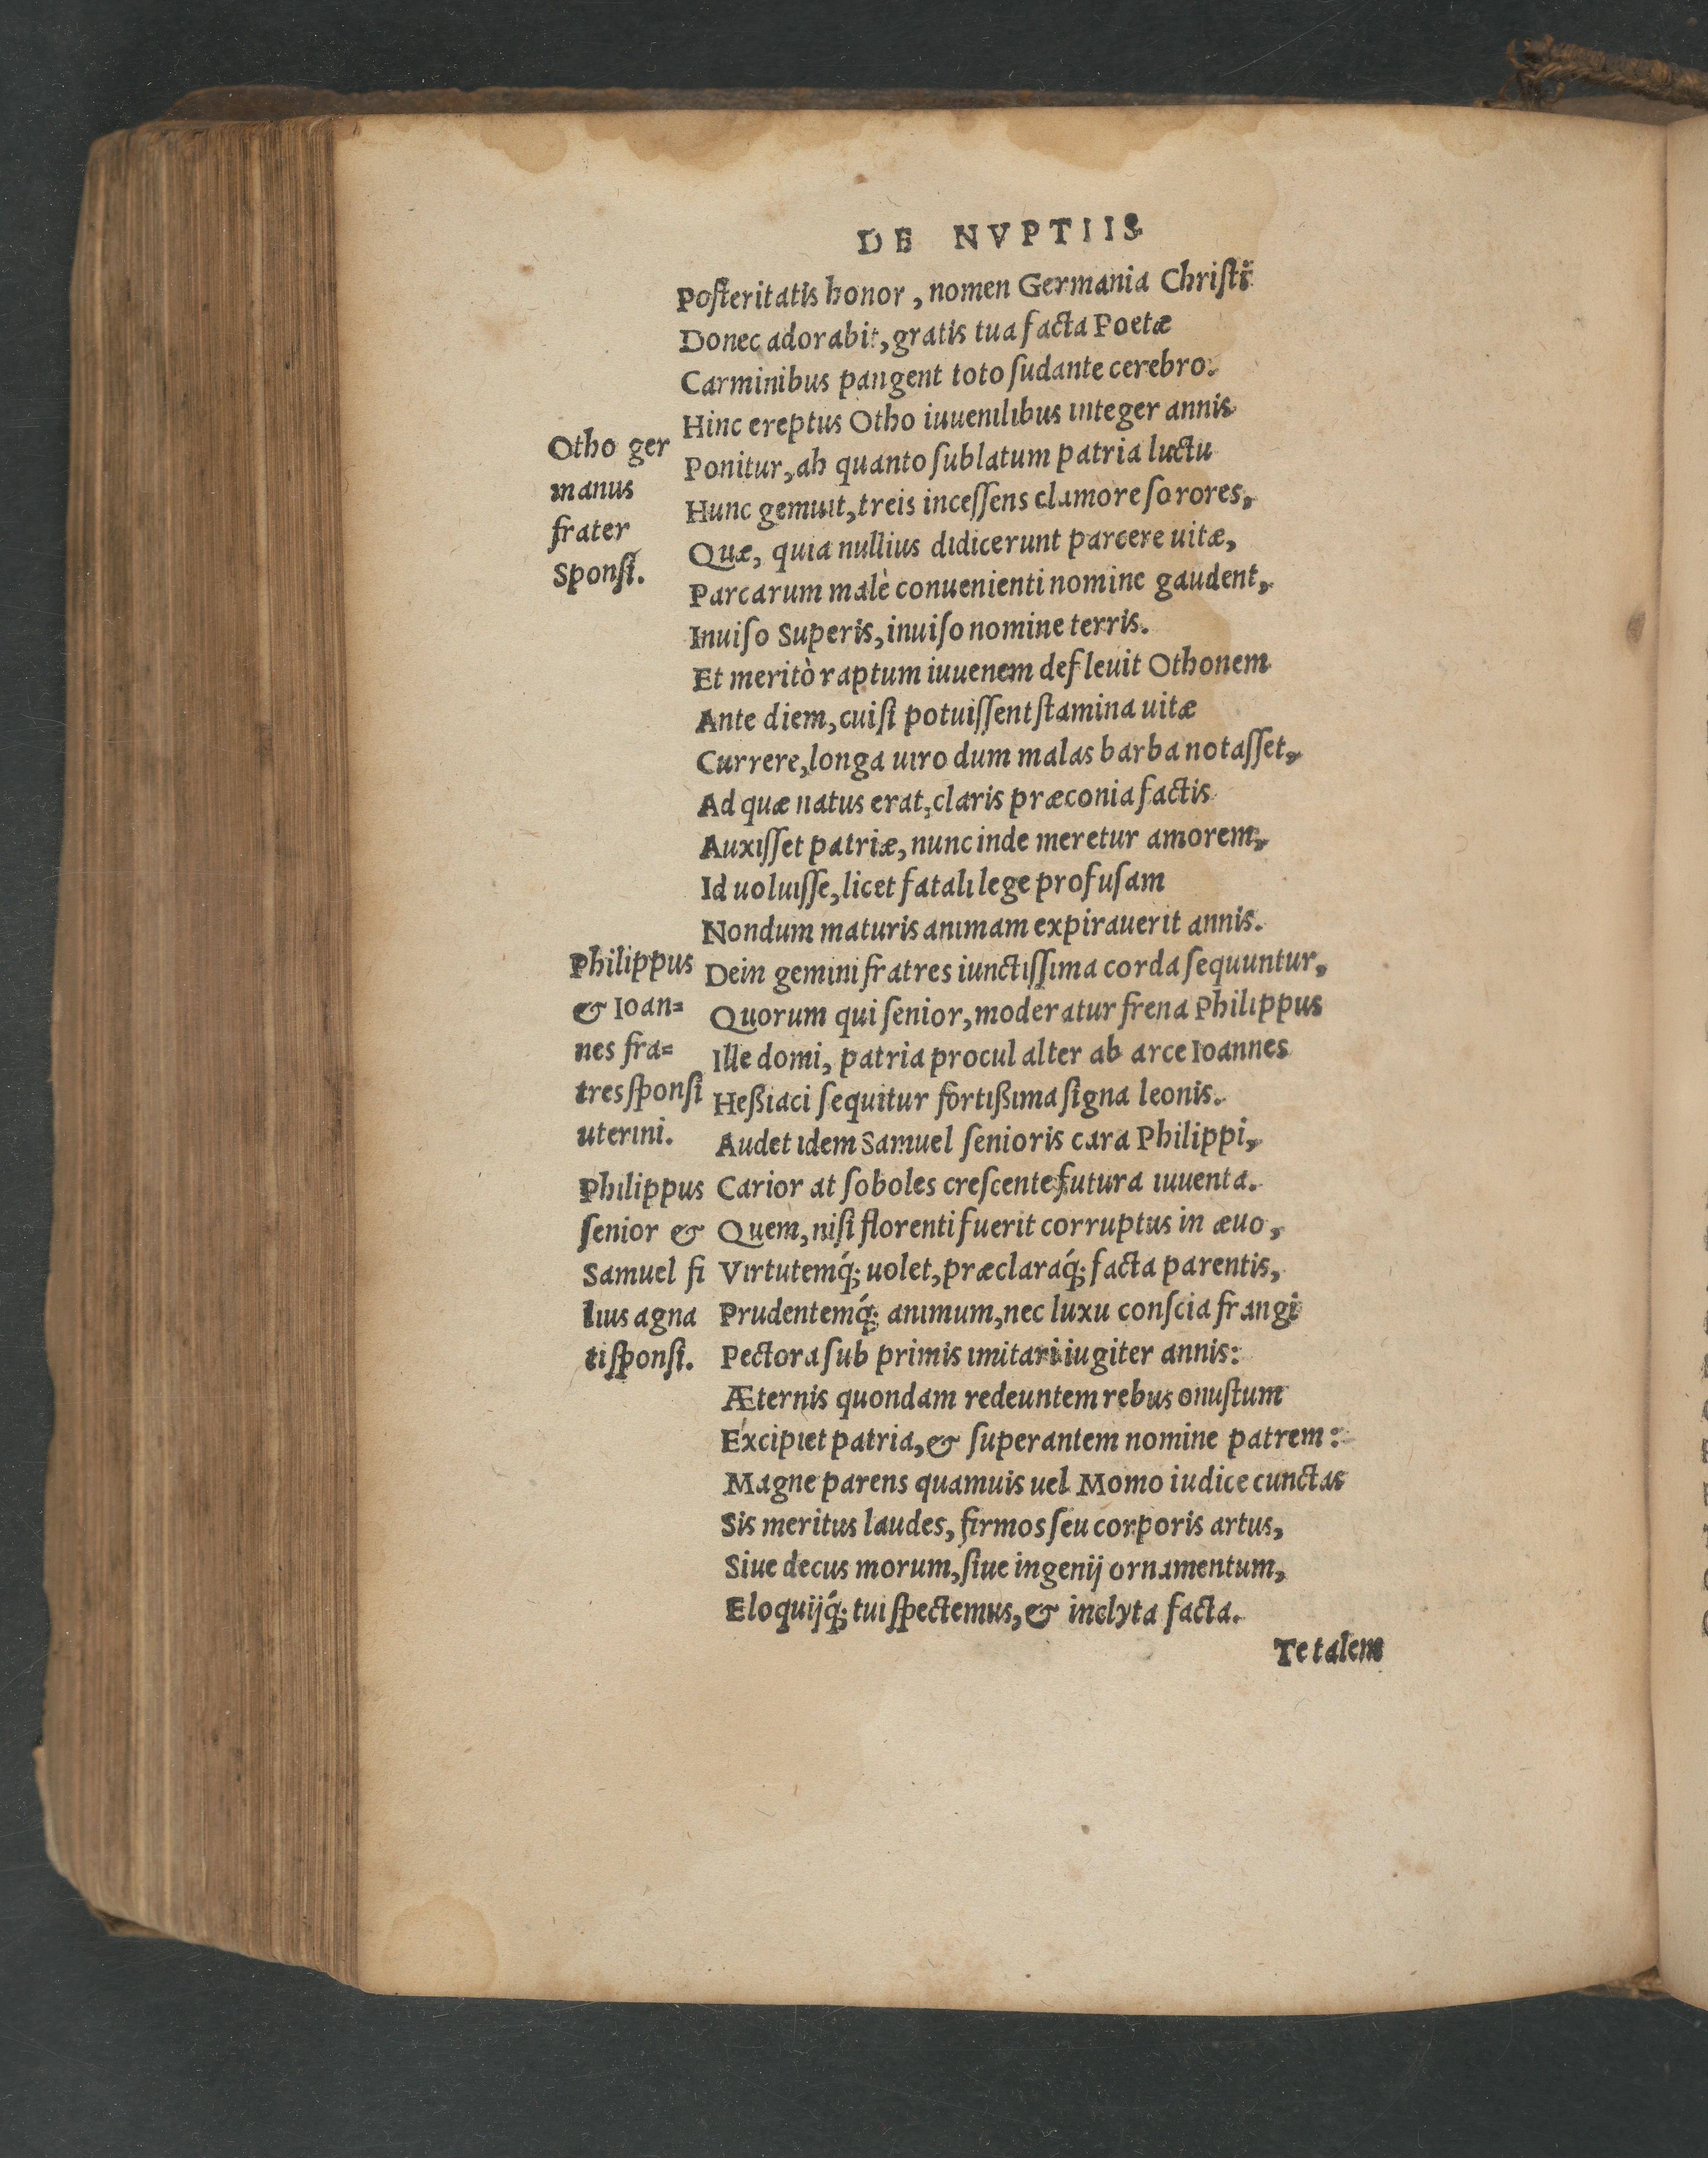 DE NVPTIIS
Poſteritatis honor, nomen Germania Chriſti
Donec adorabit, gratis tua facta Poetæ
Carminibus pangent toto ſudante cerebro.
Hinc ereptus Otho iuuenilibus integer annis
Ponitur, ah quanto ſublatum patria luctu
Hunc gemuit, treis inceſſens clamore ſorores,
Quæ, quia nullius didicerunt parcere uitæ,
Parcarum malè conuenienti nomine gaudent,
Inuiſo Superis, inuiſo nomine terris.
Et meritò raptum iuuenem defleuit Othonem
Ante diem, cui ſi potuiſſent ſtamina uitæ
Currere, longa uiro dum malas barba notaſſet,
Ad quæ natus erat, claris præconia factis
Auxiſſet patriæ, nunc inde meretur amorem,
Id uoluiſſe, licet fatali lege profuſam
Nondum maturis animam expirauerit annis.
Dein gemini fratres iunctiſſima corda ſequuntur,
Quorum qui ſenior, moderatur frena Philippus
Ille domi, patria procul alter ab arce Ioannes
Heßiaci ſequitur fortißima ſigna leonis.
Audet idem Samuel ſenioris cara Philippi,
Carior at ſoboles creſcente futura iuuenta.
Quem, niſi florenti fuerit corruptus in æuo,
Virtutemq́; uolet, præclaraq́; facta parentis,
Prudentemq́; animum, nec luxu conſcia frangi
Pectora ſub primis imitari iugiter annis:
Æternis quondam redeuntem rebus onuſtum
Excipiet patria, & ſuperantem nomine patrem:
Magne parens quamuis uel Momo iudice cunctas
Sis meritus laudes, firmos ſeu corporis artus,
Siue decus morum, ſiue ingenij ornamentum,
Eloquijq́; tui ſpectemus, & inclyta facta.
Te talem
Otho ger
manus
frater
Sponſi.
Philippus
& Ioan=
nes fra=
tres ſponſi
uterini.
Philippus
ſenior &
Samuel fi
lius agna
ti ſponſi.